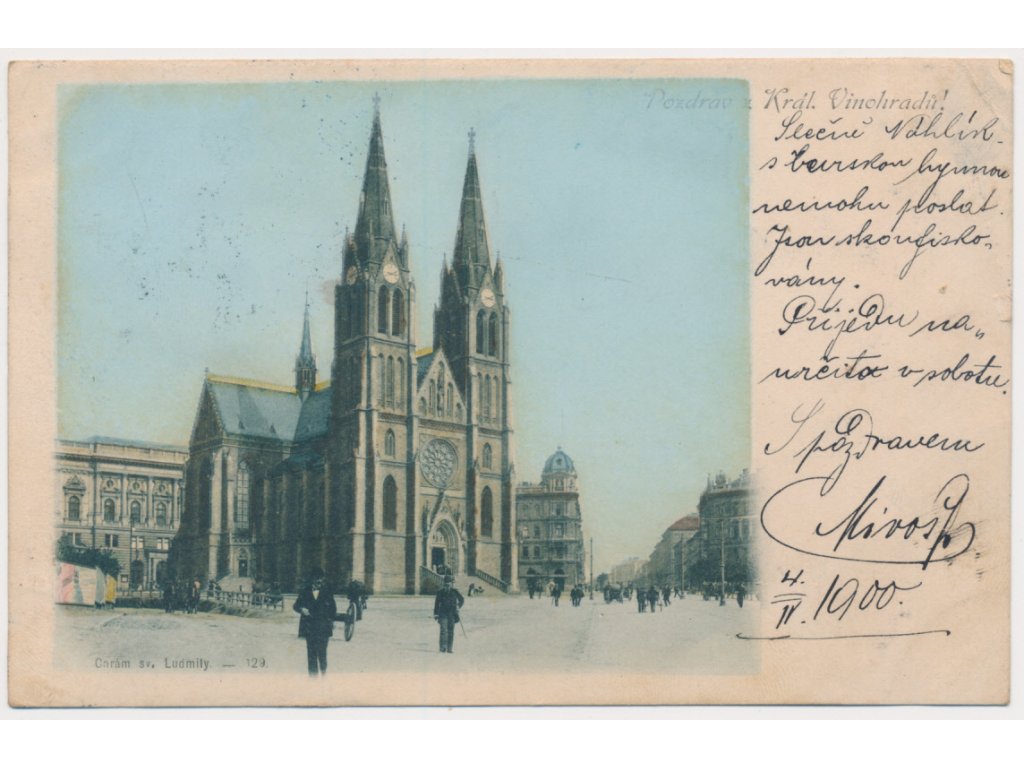 Pozdrav z Král. Vinohradů!
Slečně Nahlík.
s burskou hymnou
nemohu poslat.
Jsou skonfisko-
vány.
Přijedu na„
určito v sobotu.
S pozdravem
4./II. 1900.
Chrám sv. Ludmily. — 129.